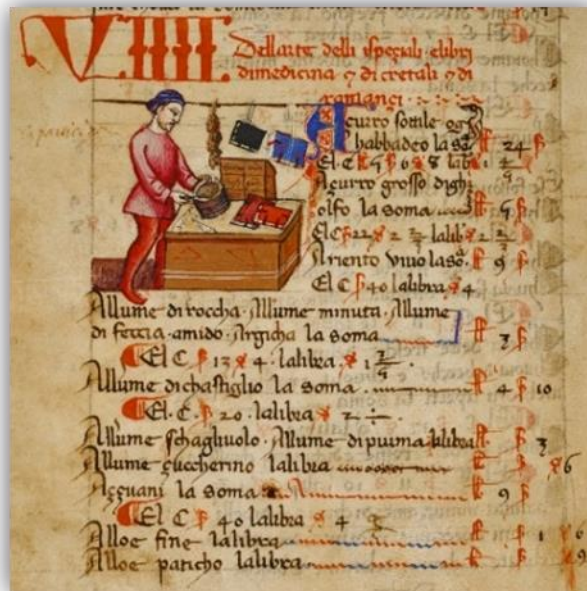 VIIII
Dell arte delli speziali elibri
dimedicina ⁊ di cretali ⁊ di
romanzi
Açurro sottile
habbadeo la so. 24
El C 5 6 8 lab 1
Açurro grosso digh
olfo la soma 5
El C 22 2 lalib 2
Ariento vivo laso. 9
El C 40 lalibra 4
Allume di roccha. Allume minuta. Allume
di feccia. amido. Argicha la soma 3
El C 13 4. lalibra 1
Allume dichastiglio la soma. 4 10
El. C. 20. lalibra 2
Allume schagliuolo. Allume dipiuma lalibra 3
Allume zuccherino lalibra 6
Azzuani la soma 9
El C 40 lalibra 4
Alloe fine lalibra 1 6
Alloe paticho lalibra 9